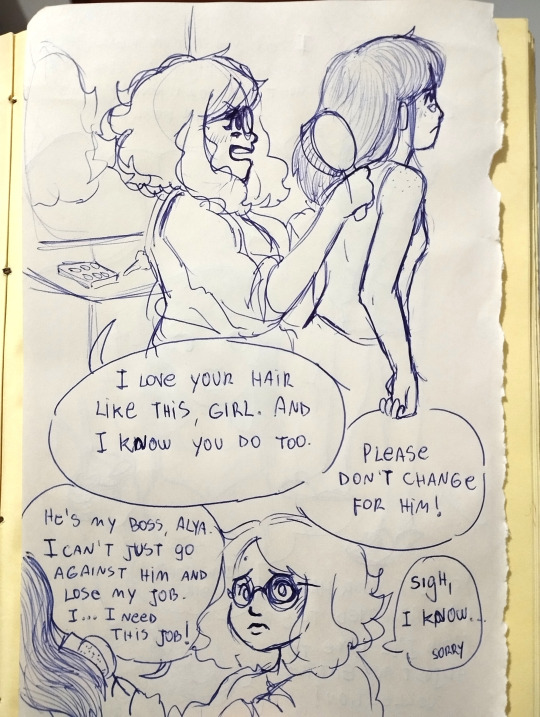 I LOVE YOUR HAIR
LIKE THIS, GIRL. AND
I KNOW YOU DO TOO.
PLEASE
DON'T CHANGE
FOR HIM!
HE'S MY BOSS, ALYA.
I CAN'T JUST GO
AGAINST HIM AND
LOSE MY JOB.
I... I NEED
THIS JOB!
SIGH,
I KNOW...
SORRY